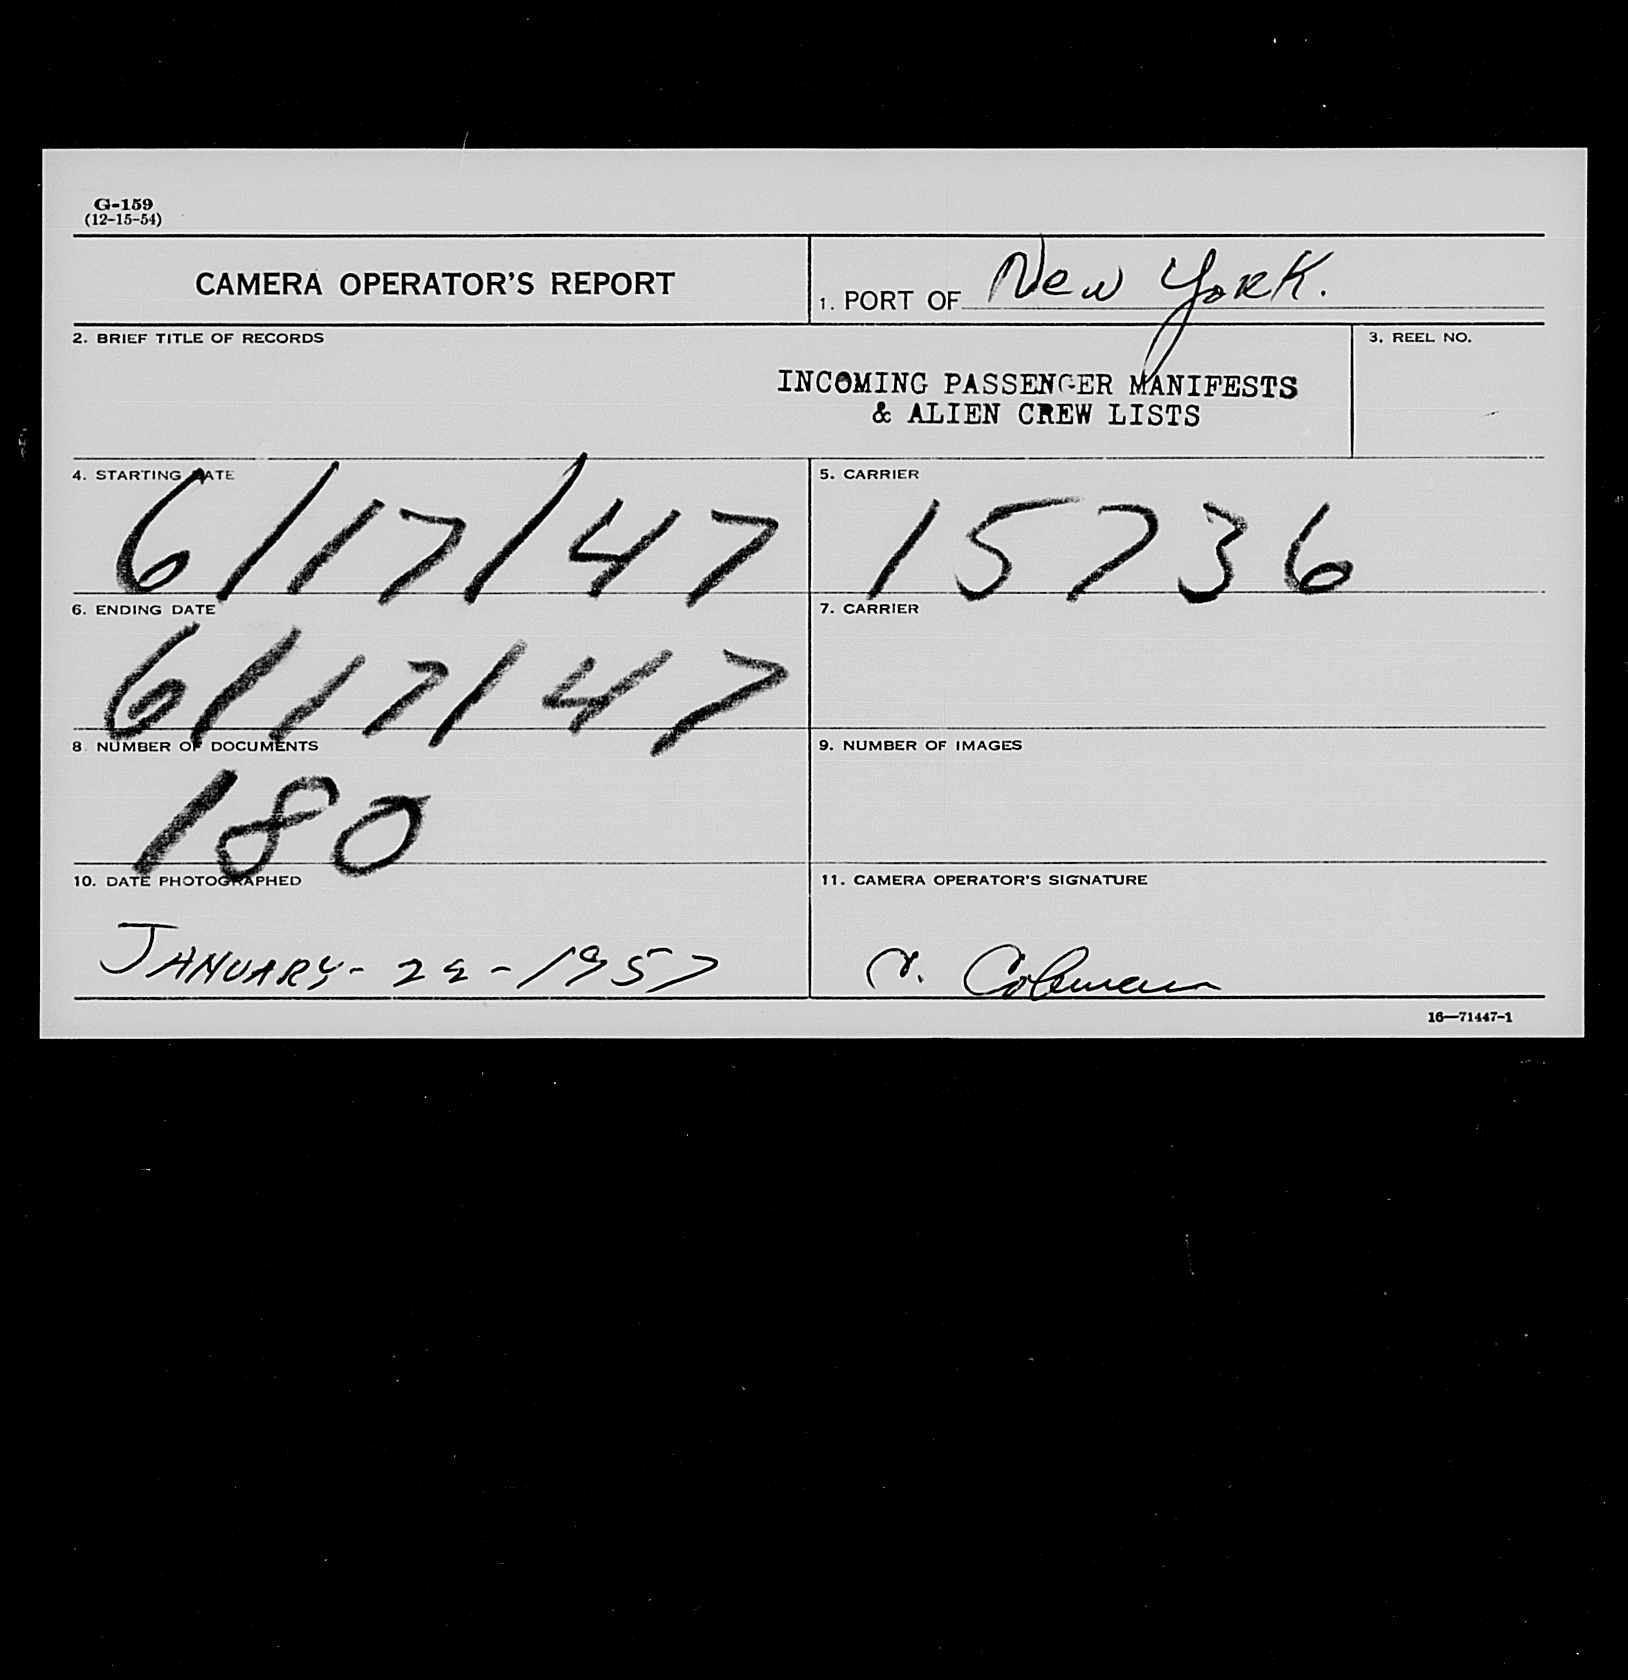 G-159
(12-15-54)
CAMERA OPERATOR'S REPORT
1. PORT OF New York.
2. BRIEF TITLE OF RECORDS
INCOMING PASSENGER MANIFESTS
& ALIEN CREW LISTS
3. REEL NO.
4. STARTING DATE
6/17/47
5. CARRIER
15736
6. ENDING DATE
6/17/47
7. CARRIER
8. NUMBER OF DOCUMENTS
180
9. NUMBER OF IMAGES
10. DATE PHOTOGRAPHED
JANUARY - 22 - 1957
11. CAMERA OPERATOR'S SIGNATURE
Coleman
16—71447-1